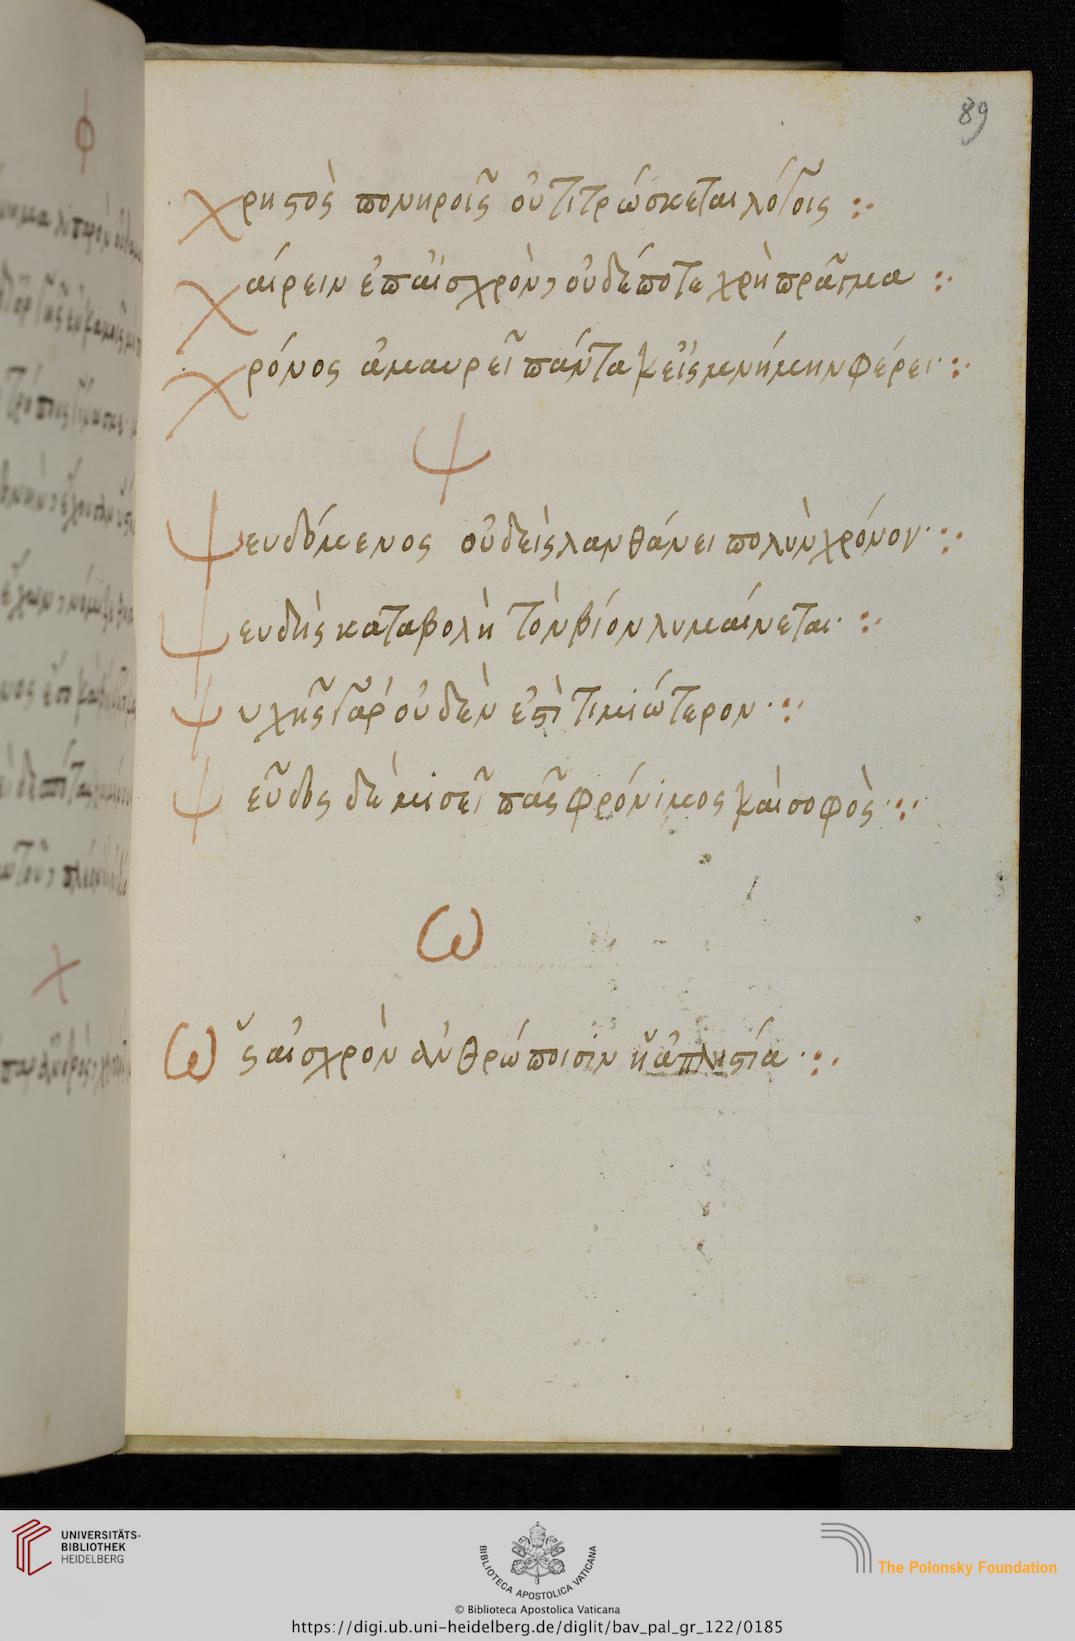 89
χρηστὸς πονηροῖς οὐ τιτρώσκεται λόγοις :·
χαίρειν ἐπ αἰσχρὸν, οὐδέποτε χρὴ πρᾶγμα :·
χρόνος ἀμαυρεῖ πάντα κ εἰς μνήμην φέρει· :·
ψ
ψευδόμενος οὐδεὶς λανθάνει πολὺν χρόνον· :·
ψευδὴς καταβολὴ τὸν βίον λυμαίνεται· :·
ψυχῆς γὰρ οὐδὲν ἐστὶ τιμιώτερον· :·
ψεῦδος δὲ μισεῖ πᾶς φρόνιμος καὶ σοφὸς· :·
ω
ὡς αἰσχρὸν ἀνθρώποισιν ἡ ἀπληστία· :·
UNIVERSITÄTS-
BIBLIOTHEK
HEIDELBERG
BIBLIOTECA APOSTOLICA VATICANA
The Polonsky Foundation
© Biblioteca Apostolica Vaticana
https://digi.ub.uni-heidelberg.de/diglit/bav_pal_gr_122/0185